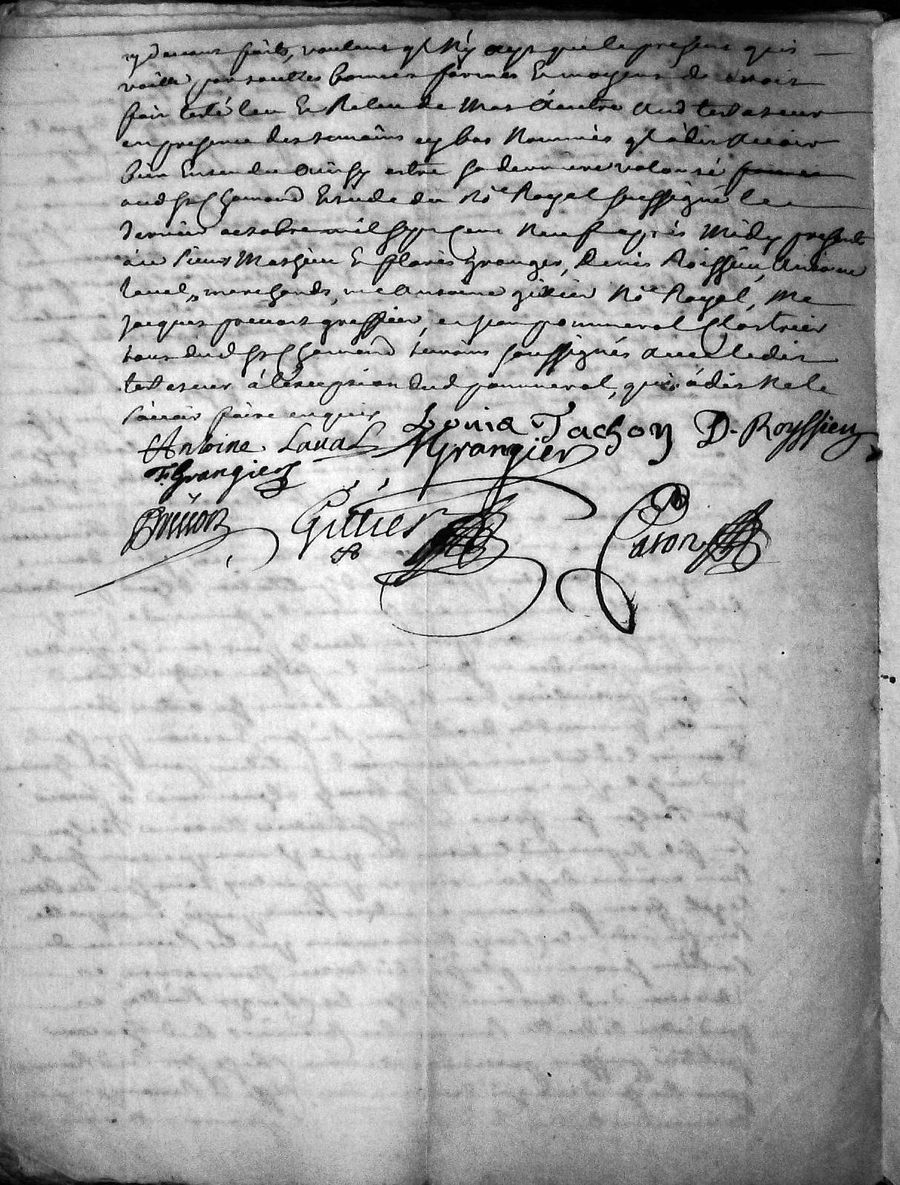 cydevant faits, voulant qu'il n'y aye que le present qui
vaille par touttes bonnes formes et moyens de droit
fait testé leu et releu de mot à autre aud testateur
en presence des temoins cy bas nommés qu'il a dit avoir
bien entendu ainsy estre sa derniere volonté
aud St Chamond estude du Nre Royal soussigné le
dernier octobre mil sept cent neuf apres midy presents
Mathieu et Granger, Denis Roissieu, Antoine
Laval, marchands, me Antoine Gillier Nre Royal, Me
Jacques greffier, et Jean pommerol
tous dud St Chamond temoins soussignés avec ledit
testateur à l'exception dud pommerol, qui a dit ne le
sçavoir faire enquis
Antoine Laval Louis Tachon D. Royssieu
F. Grangier MGrangier
Gillier Paton